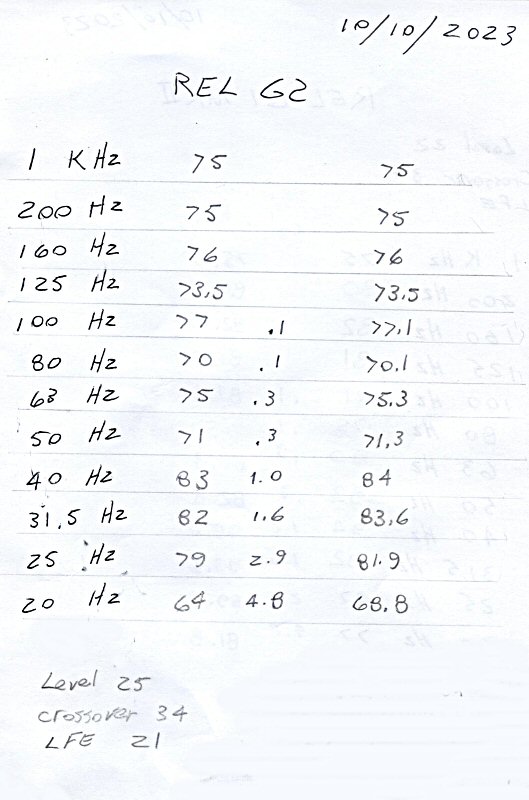 10/10/2023
REL G2
1 KHz 75 75
200 Hz 75 75
160 Hz 76 76
125 Hz 73.5 73.5
100 Hz 77 .1 77.1
80 Hz 70 .1 70.1
63 Hz 75 .3 75.3
50 Hz 71 .3 71.3
40 Hz 83 1.0 84
31.5 Hz 82 1.6 83.6
25 Hz 79 2.9 81.9
20 Hz 64 4.8 68.8
Level 25
crossover 34
LFE 21